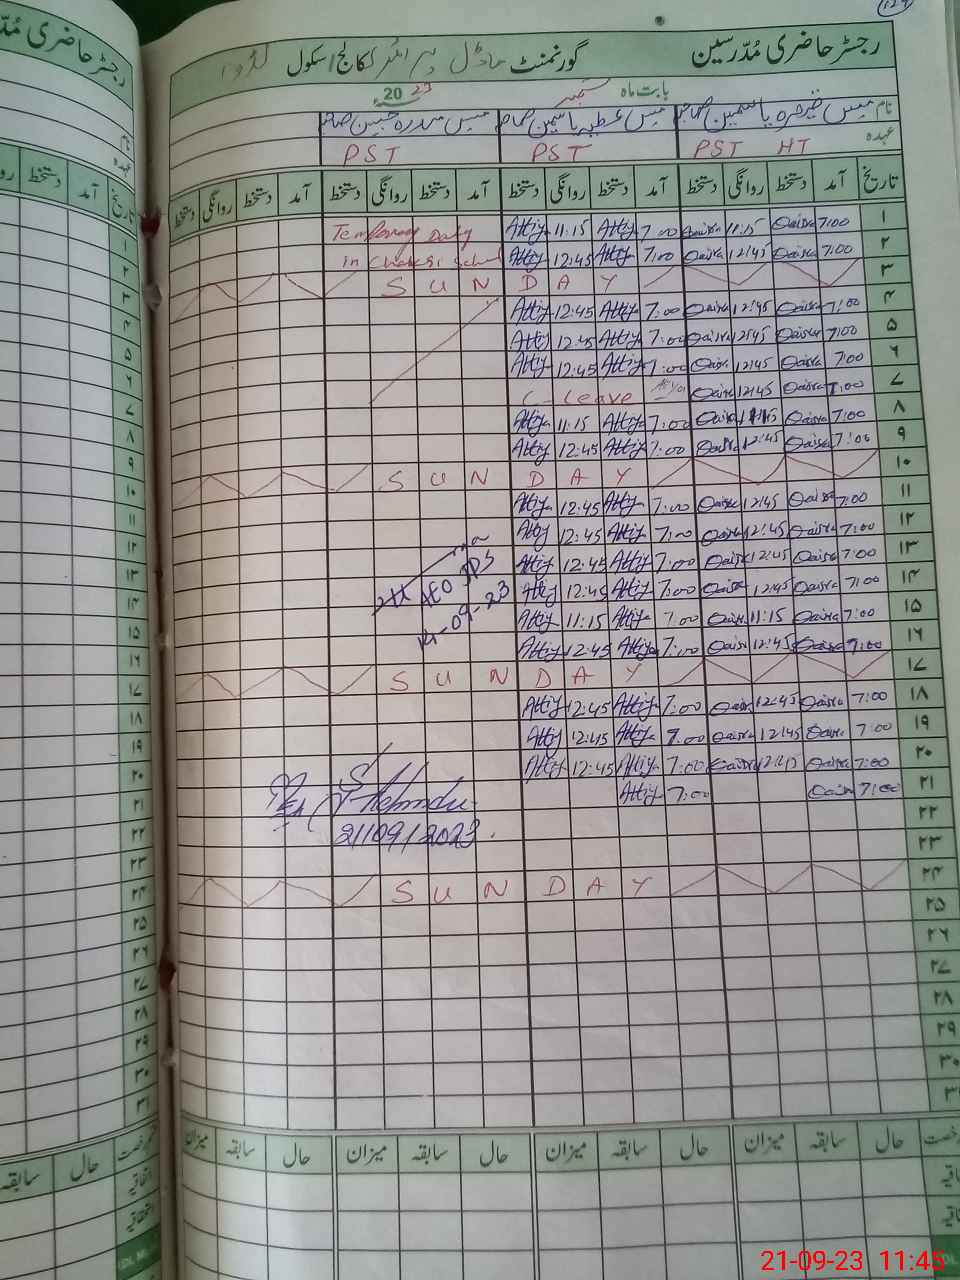 رجسٹر حاضری مُدّرسین گورنمنٹ ماڈل پرائمری / کالج / سکول
بابت ماہ ستمبر 2023
نام مس یاسمین صاحبہ مس عطیہ یاسمین صاحبہ مس جبین صاحبہ
عہدہ PST HT PST PST
تاریخ آمد دستخط روانگی دستخط آمد دستخط روانگی دستخط آمد دستخط روانگی دستخط آمد دستخط روانگی دستخط
۱ 7:00 Qaisra 11:15 Qaisra 7:00 Attiya 11:15 Attiya Temporary Duty
۲ 7:00 Qaisra 12:45 Qaisra 7:00 Attiya 12:45 Attiya in School
۳ SUNDAY
۴ 7:00 Qaisra 12:45 Qaisra 7:00 Attiya 12:45 Attiya
۵ 7:00 Qaisra 12:45 Qaisra 7:00 Attiya 12:45 Attiya
۶ 7:00 Qaisra 12:45 Qaisra 7:00 Attiya 12:45 Attiya
۷ 7:00 Qaisra 12:45 Qaisra C-Leave
۸ 7:00 Qaisra 11:15 Qaisra 7:00 Attiya 11:15 Attiya
۹ 7:00 Qaisra 12:45 Qaisra 7:00 Attiya 12:45 Attiya
۱۰ SUNDAY
۱۱ 7:00 Qaisra 12:45 Qaisra 7:00 Attiya 12:45 Attiya
۱۲ 7:00 Qaisra 12:45 Qaisra 7:00 Attiya 12:45 Attiya
۱۳ 7:00 Qaisra 12:45 Qaisra 7:00 Attiya 12:45 Attiya
۱۴ 7:00 Qaisra 12:45 Qaisra 7:00 Attiya 12:45 Attiya
AEO
14-09-23
۱۵ 7:00 Qaisra 11:15 Qaisra 7:00 Attiya 11:15 Attiya
۱۶ 7:00 Qaisra 12:45 Qaisra 7:00 Attiya 12:45 Attiya
۱۷ SUNDAY
۱۸ 7:00 Qaisra 12:45 Qaisra 7:00 Attiya 12:45 Attiya
۱۹ 7:00 Qaisra 12:45 Qaisra 7:00 Attiya 12:45 Attiya
۲۰ 7:00 Qaisra 12:45 Qaisra 7:00 Attiya 12:45 Attiya
۲۱ 7:00 Qaisra 7:00 Attiya
21/09/2023
۲۲
۲۳
۲۴ SUNDAY
۲۵
۲۶
۲۷
۲۸
۲۹
۳۰
حال سابقہ میزان حال سابقہ میزان حال سابقہ میزان حال سابقہ میزان
رجسٹر حاضری مُدّر
نام
عہدہ
تاریخ آمد دستخط
۱
۲
۳
۴
۵
۶
۷
۸
۹
۱۰
۱۱
۱۲
۱۳
۱۴
۱۵
۱۶
۱۷
۱۸
۱۹
۲۰
۲۱
۲۲
۲۳
۲۴
۲۵
۲۶
۲۷
۲۸
۲۹
۳۰
۳۱
حال سابقہ
اتفاقیہ
استحقاقیہ
21-09-23 11:45